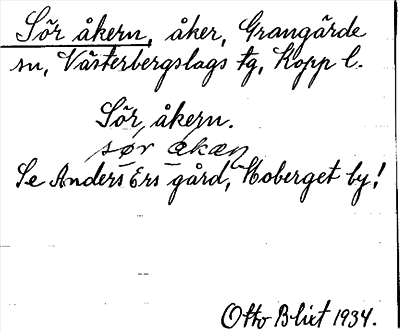 Sör åkern, åker, Grangärde
sn, Västerbergslags tg, Kopp l.
Sör, åkern.
sør åkæɳ
Se Anders Ers gård, Hoberget by!
Otto Blixt 1934.